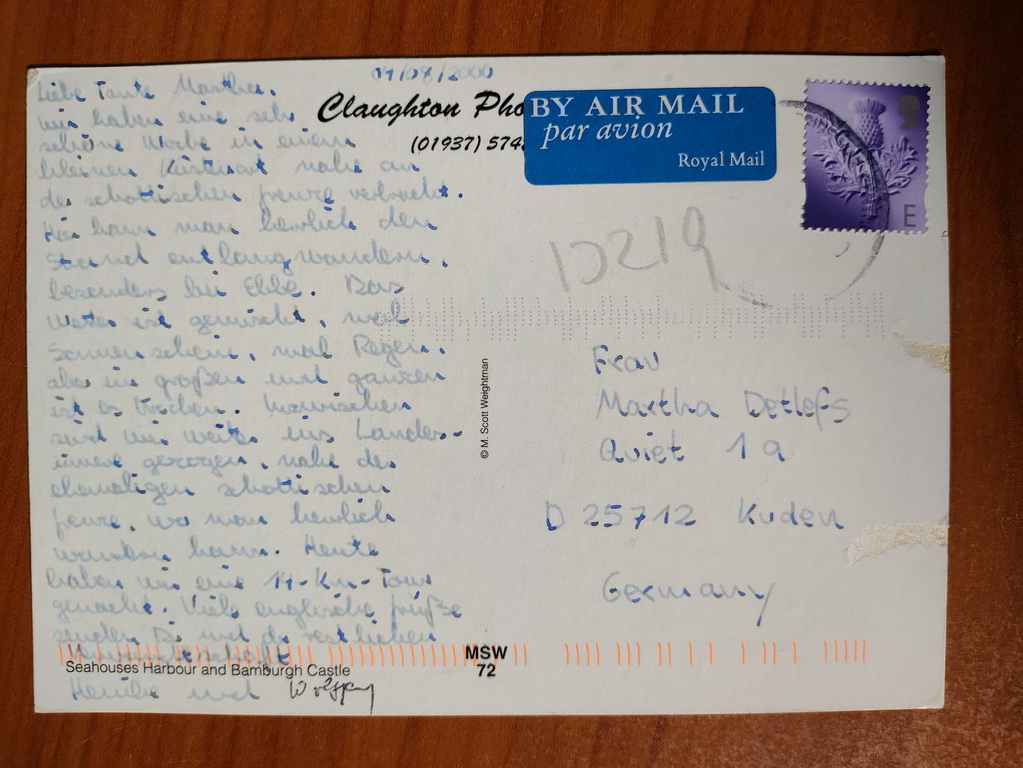 09/08/2000
Liebe Tante Martha,
wir haben eine sehr
schöne Woche in einem
kleinen Küstenort nahe an
der schottischen Grenze verbracht.
Hier kann man herrlich den
Strand entlangwandern,
besonders bei Ebbe. Das
Wetter ist gemischt, mal
Sonnenschein, mal Regen,
aber im großen und ganzen
ist es trocken. Inzwischen
sind wir weiter ins Landes-
innere gezogen, nahe der
ehemaligen schottischen
Grenze, wo man herrlich
wandern kann. Heute
haben wir eine 14-Km-Tour
gemacht. Viele englische Grüße
senden Dir und der restlichen
Verwandtschaft
Henrike und Wolfgang
Claughton Pho
(01937) 574
BY AIR MAIL
par avion
Royal Mail
E
D219
© M. Scott Weightman
Frau
Martha Detlefs
Quiet 1a
D 25712 Kuden
Germany
Seahouses Harbour and Bamburgh Castle
MSW
72